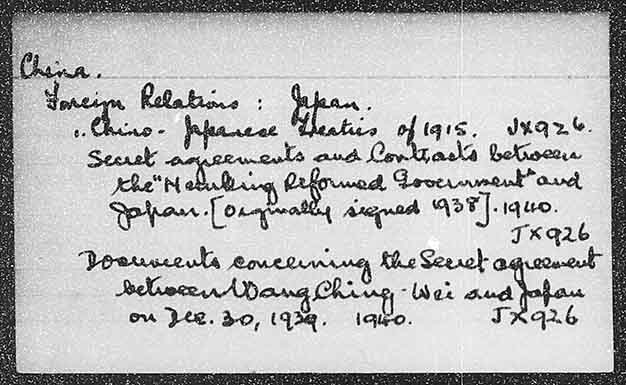 China.
Foreign Relations : Japan.
,, Chino-Japanese Treaties of 1915. JX926.
Secret agreements and Contracts between
the "Nanking Reformed Government" and
Japan. [Originally signed 1938]. 1940.
JX926
Documents concerning the Secret agreement
between Wang Ching-Wei and Japan
on Dec. 30, 1939. 1940. JX926